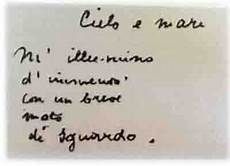 Cielo e mare
M' illu-mino
d' immenso
con un breve
moto
di sguardo.